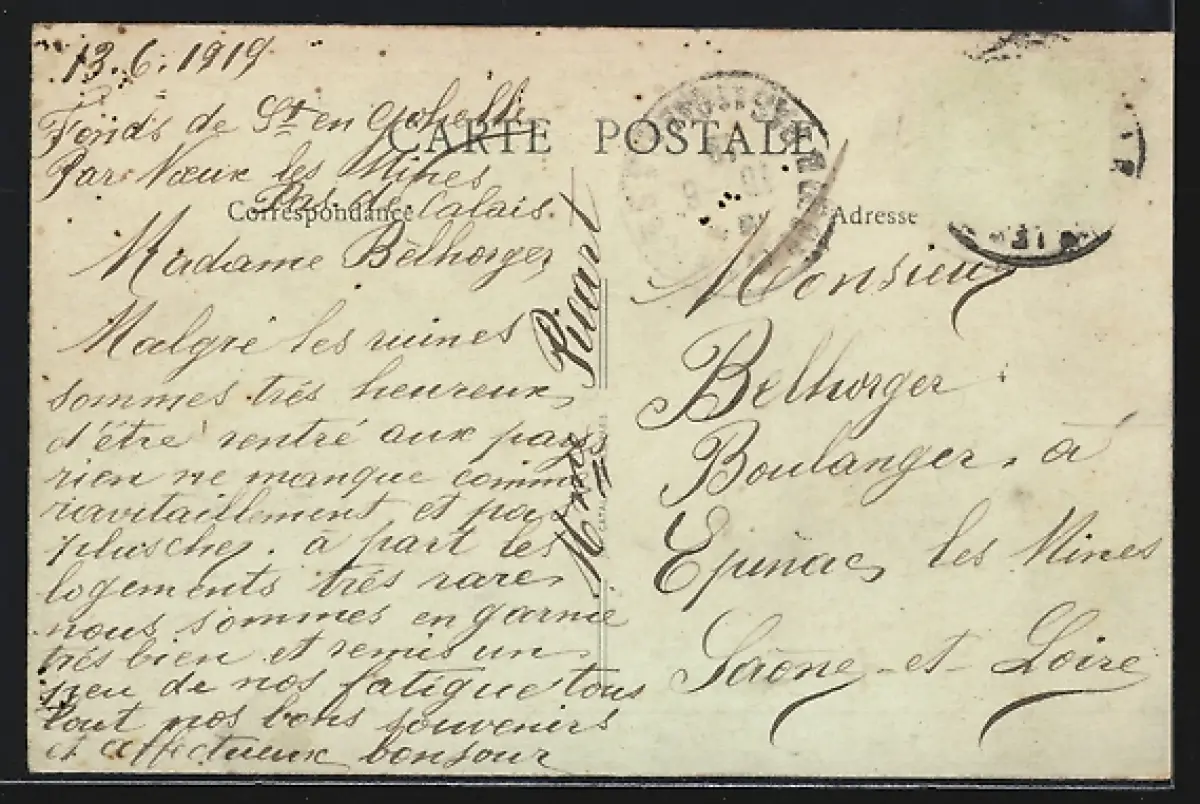 13.6.1919
Fonds de St en gohelle
Par Nœux les Mines
Pas de Calais.
CARTE POSTALE
Correspondance
Adresse
Madame Belhorger
Malgré les ruines
sommes trés heureux
d'étre rentré aux pays
rien ne manque comme
ravitaillement et pas
plus cher. à part les
logements trés rares
nous sommes en garnie
trés bien et remis un
peu de nos fatigue tous
tout nos bons souvenirs
et affectueux bonjour
Mme Picart
Monsieur
Belhorger
Boulanger, à
Epinac les Mines
Saône-et-Loire